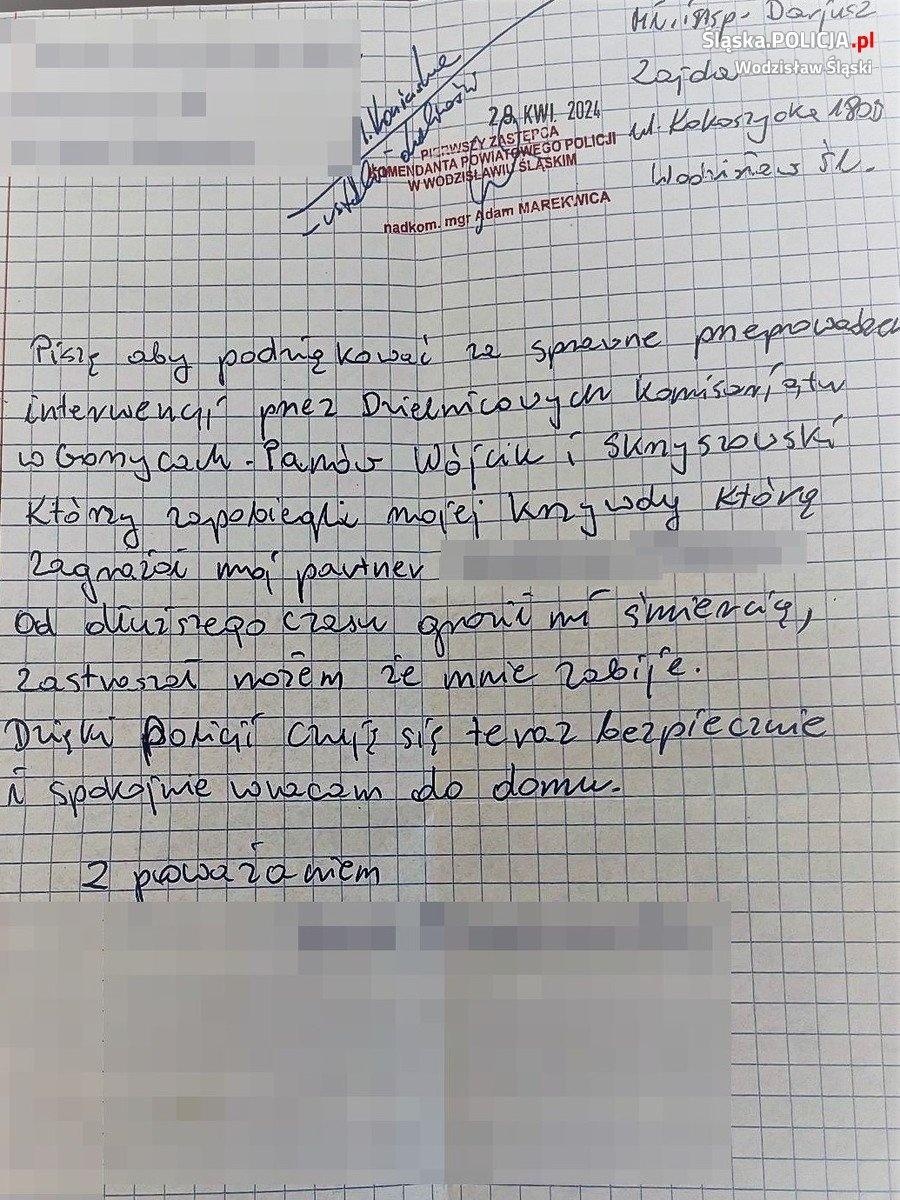 Mł. insp. Dariusz
Śląska.POLICJA.pl
Wodzisław Śląski
Zajda
ul. Kokoszycka 180B
Wodzisław Śl.
- ustalić dzielnicowych
29. KWI. 2024
PIERWSZY ZASTĘPCA
KOMENDANTA POWIATOWEGO POLICJI
W WODZISŁAWIU ŚLĄSKIM
nadkom. mgr Adam MAREKWICA
Piszę aby podziękować za sprawne przeprowadzen
interwencji przez Dzielnicowych Komisariatu
w Gorzycach. Panów Wójcik i Skrzyszowski
Którzy zapobiegli mojej krzywdy którą
zagrażał mój partner
Od dłuższego czasu groził mi śmiercią,
zastraszał nożem że mnie zabije.
Dzięki Policji czuję się teraz bezpiecznie
i spokojnie wracam do domu.
Z poważaniem